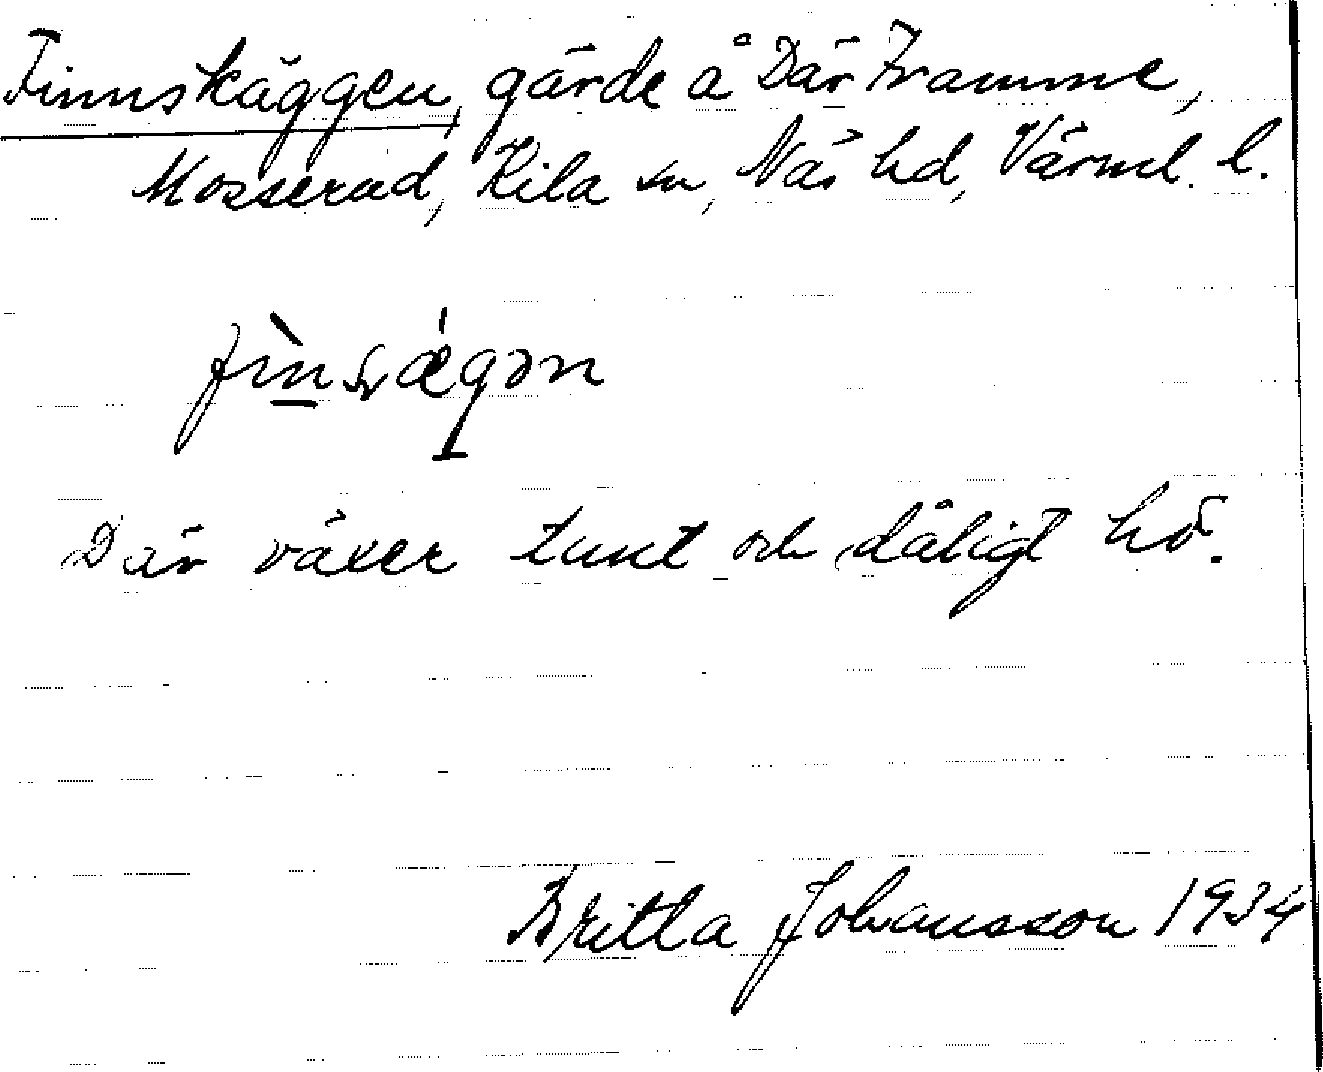 Finnskäggen, gärde å Där Framme,
Mosserud, Kila sn, Näs hd, Värml. l.
Där växer tunt och dåligt hö.
Britta Johansson 1934